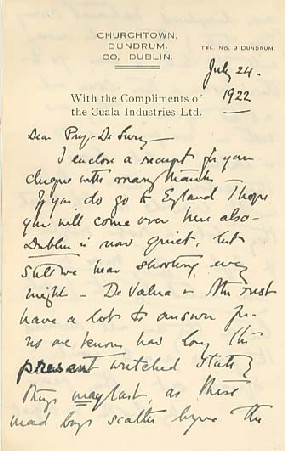 CHURCHTOWN,
DUNDRUM,
CO. DUBLIN.
TEL. NO. 9 DUNDRUM.
July 24 -
1922
With the Compliments of
the Cuala Industries Ltd.
Dear Prof. De
I enclose a receipt for your
cheque with many thanks -
If you do go to England I hope
you will come over here also -
Dublin is now quiet, but
still we hear shooting every
night - De Valera & the rest
have a lot to answer for -
no one knows how long this
present wretched state of
things may last, as these
mad boys scatter before the